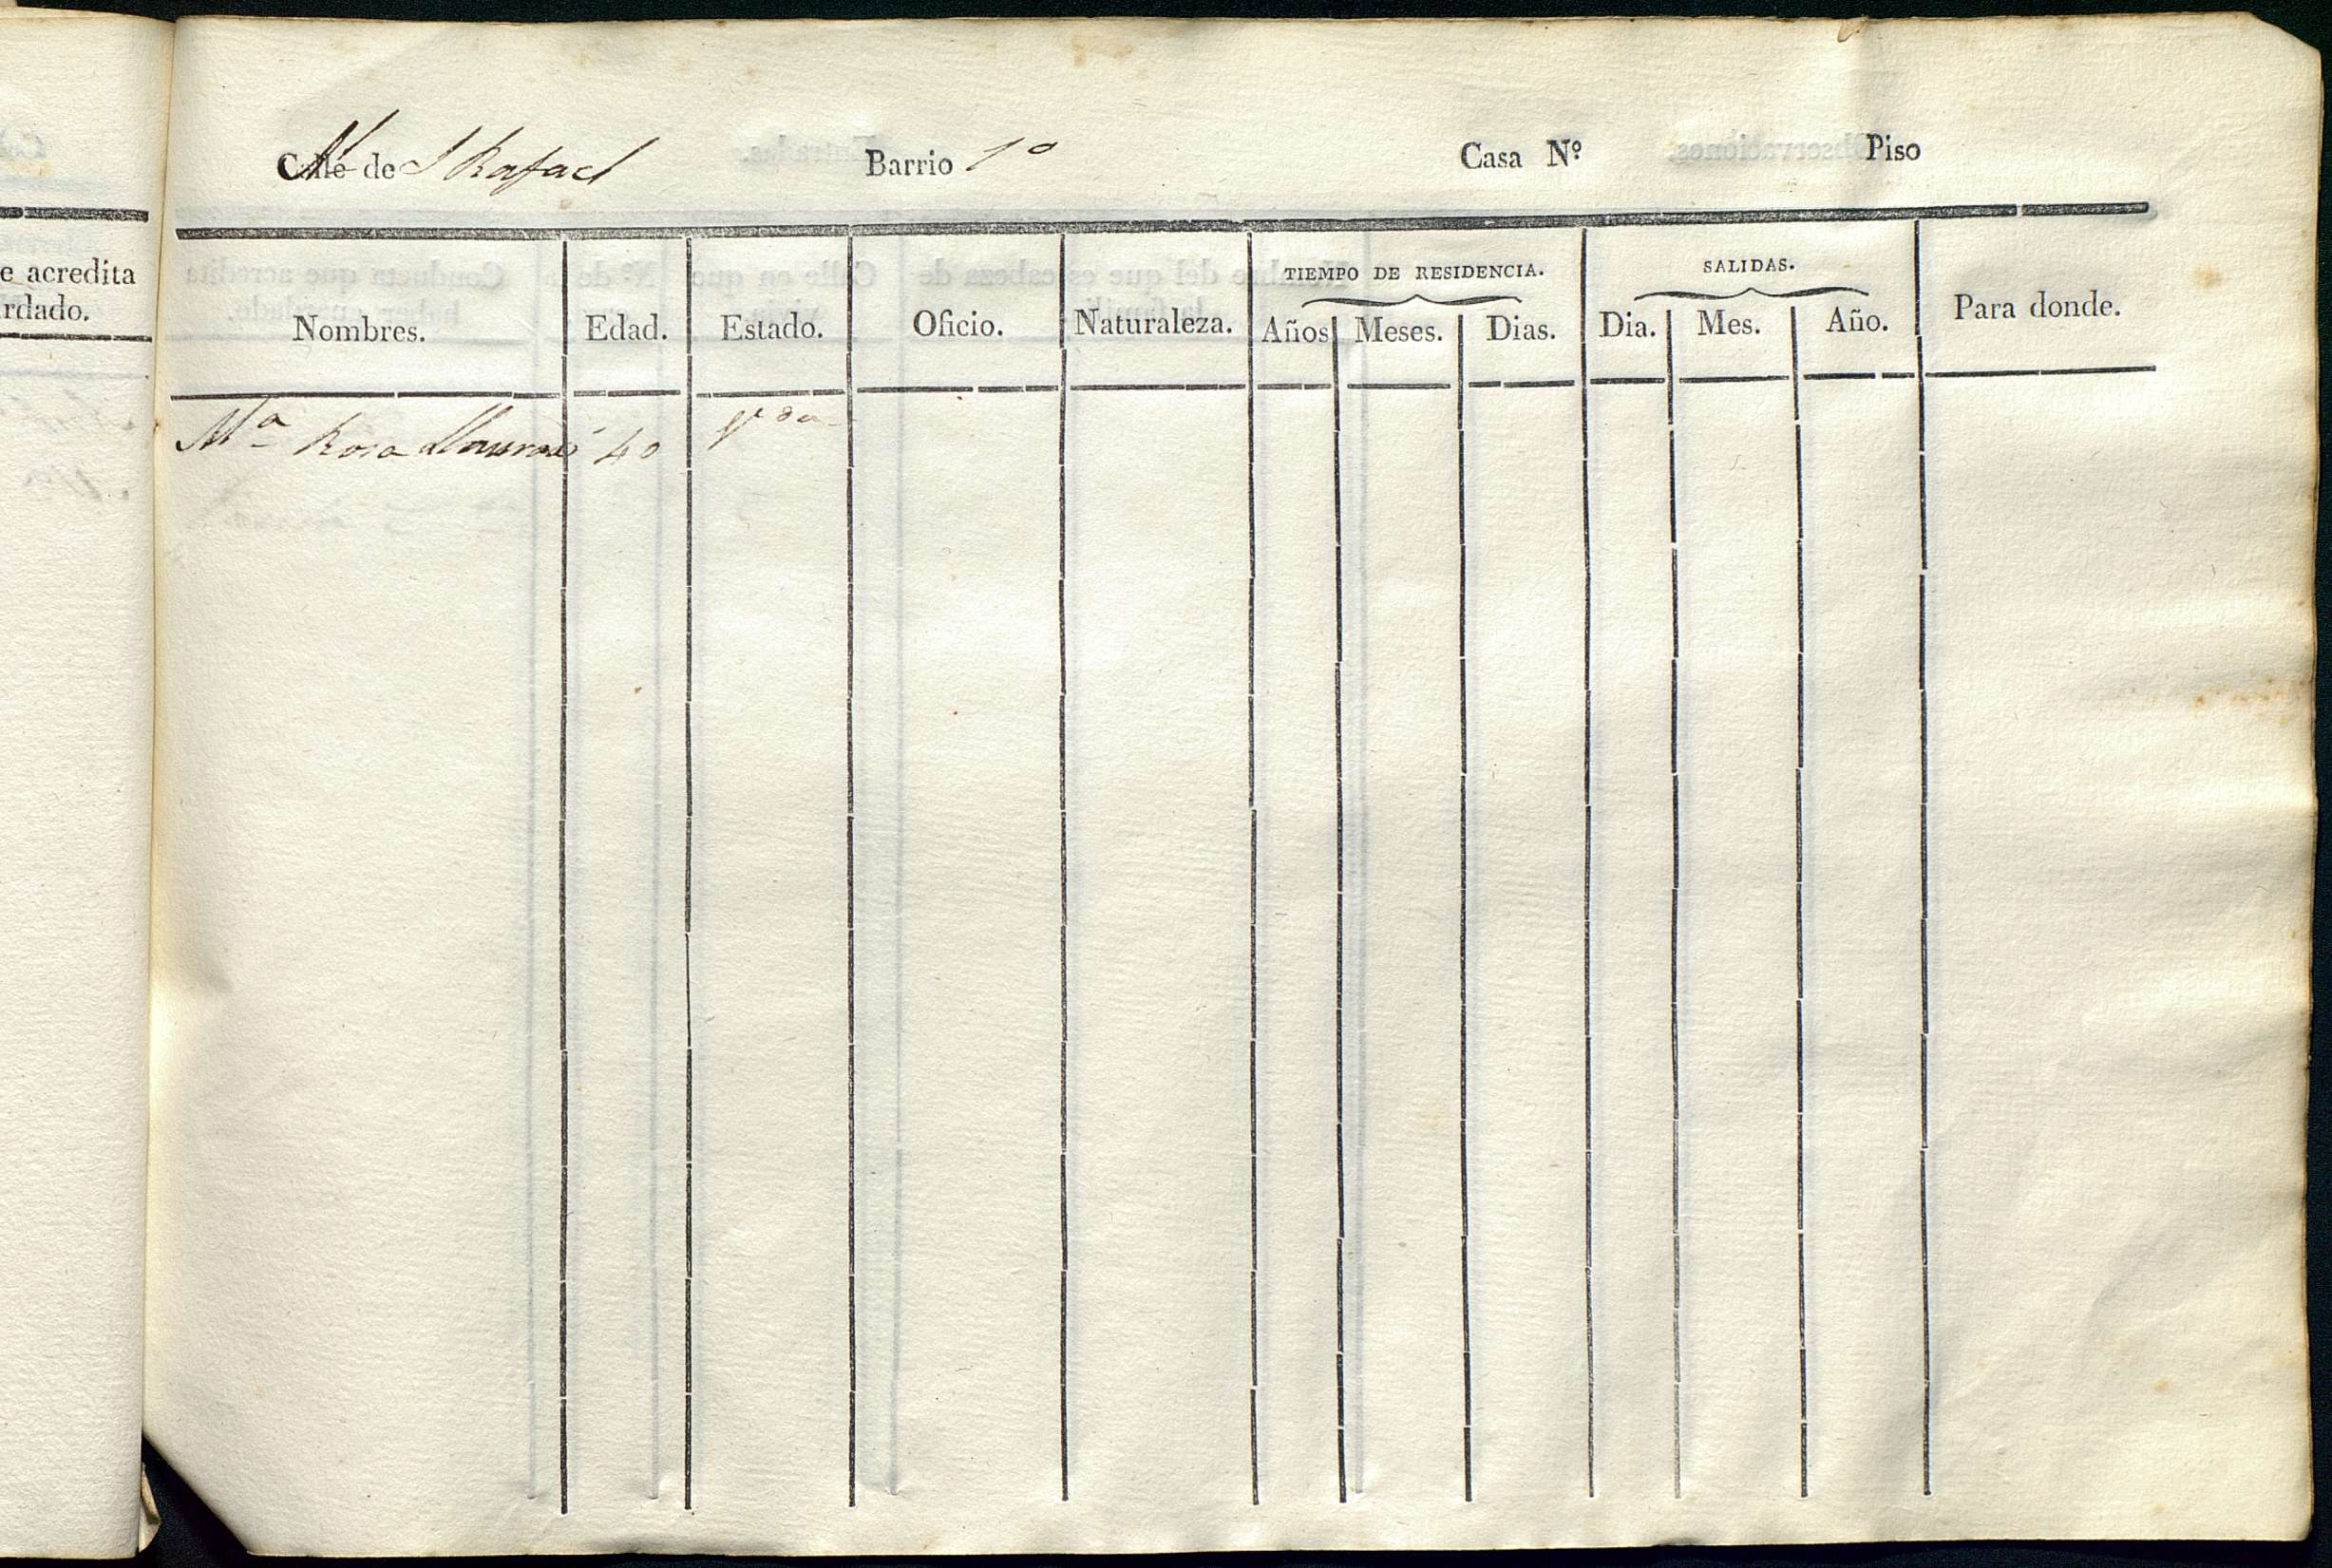 e acredita
rdado.
Calle de S Rafael Barrio 1º Casa Nº Piso
TIEMPO DE RESIDENCIA. SALIDAS.
Nombres. Edad. Estado. Oficio. Naturaleza. Años Meses. Dias. Dia. Mes. Año. Para donde.
Mª Rosa Llauradó 40 Vda